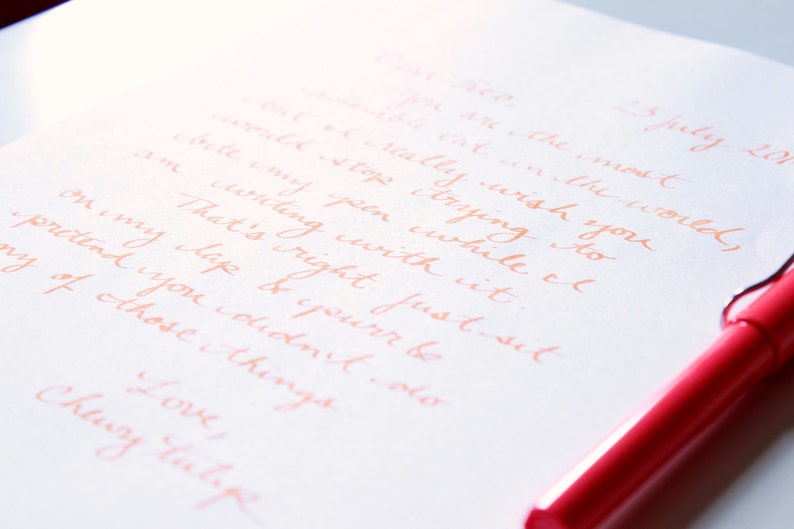 23 July 201
Dear Taco,
You are the most
adorable cat in the world,
but I really wish you
would stop trying to
bite my pen while I
am writing with it.
That's right just sit
on my lap & purr &
pretend you didn't do
ny of those things
Love,
Chewy Tulip